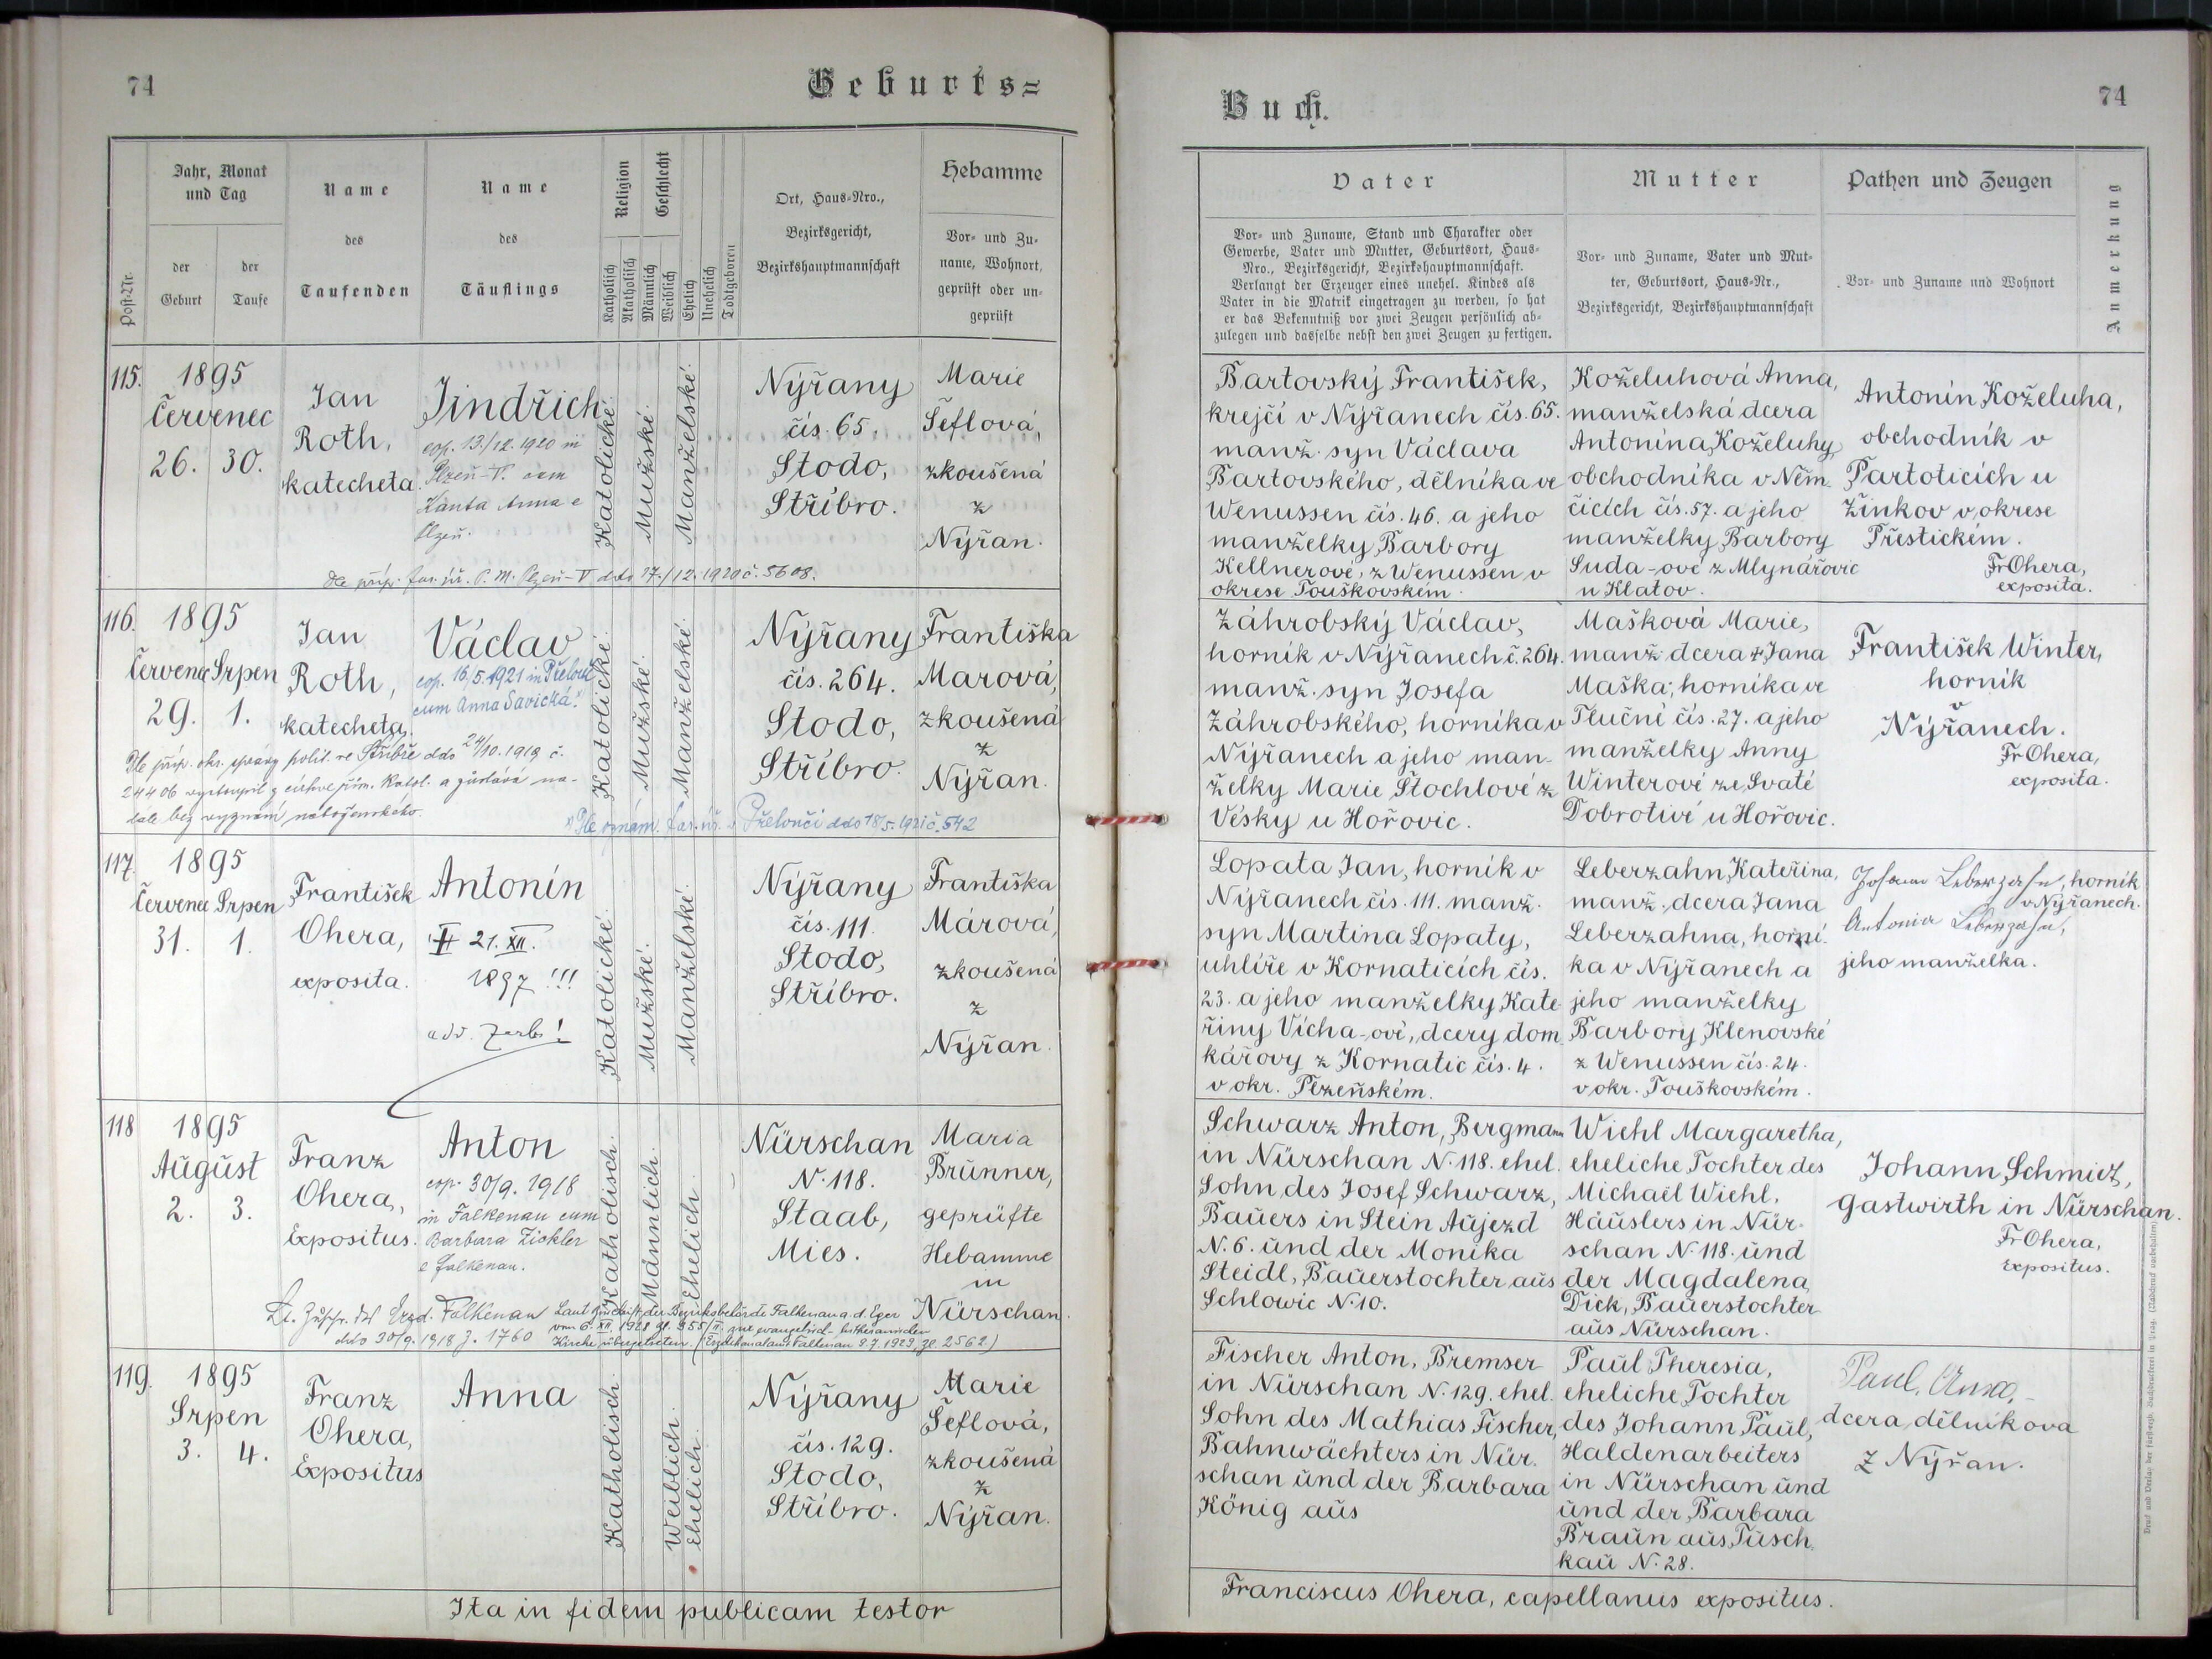 74
Geburts=
Post-Nr.
Jahr, Monat
und Tag
der
Geburt
der
Taufe
Name
des
Taufenden
Name
des
Täuflings
Religion
Katholisch
Akatholisch
Geschlecht
Männlich
Weiblich
Ehelich
Unehelich
Todtgeboren
Ort, Haus-Nro.,
Bezirksgericht,
Bezirkshauptmannschaft
Hebamme
Vor- und Zu-
name, Wohnort,
geprüft oder un-
geprüft
115.
1895
Červenec
26. 30.
Jan
Roth,
katecheta.
Jindřich
cop. 13./12. 1920 in
Plzeň-V. cum
Kanta Anna e
Plzeň.
Katolické.
Mužské.
Manželské.
Nýřany
čís. 65.
Stodo,
Stříbro.
Marie
Šeflová,
zkoušená
z
Nýřan.
Dle příp. far. úř. P. M. Plzeň-V dto 17./12. 1920 č. 5608.
116.
1895
Červenec Srpen
29. 1.
Jan
Roth,
katecheta.
Václav
cop. 16/5. 1921 in Přelouč
cum Anna Savická.
Katolické.
Mužské.
Manželské.
Nýřany
čís. 264.
Stodo,
Stříbro.
Františka
Marová,
zkoušená
z
Nýřan.
Dle příp. okr. správy polit. ve Stříbře ddo 24/10. 1919 č.
24406 vystoupil z církve řím. katol. a zůstává na-
dále bez vyznání náboženského.
Dle oznám. far. úř. v Přelouči ddo 18/5. 1921 č. 542
117.
1895
Červenec Srpen
31. 1.
František
Ohera,
exposita.
Antonín
21. XII.
1897 !!!
Katolické.
Mužské.
Manželské.
Nýřany
čís. 111.
Stodo,
Stříbro.
Františka
Márová,
zkoušená
z
Nýřan.
118
1895
August
2. 3.
Franz
Ohera,
Expositus.
Anton
cop. 30/9. 1918
in Falkenau cum
Barbara Zickler
e Falkenau.
Katholisch.
Männlich.
Ehelich.
Nürschan
N. 118.
Staab,
Mies.
Maria
Brunner,
geprüfte
Hebamme
in
Nürschan.
Lt. Zuschr. des Erzd. Falkenau
dto 30/9. 1918 Z. 1760
Laut Zuschrift der Bezirksbehörde Falkenau a. d. Eger
vom 6. XII. 1928 zl. 355/II. zur evangelisch-lutheranischen
Kirche übergetreten. (Erzdekanalamt Falkenau 9.7.1929, zl. 2562.)
119.
1895
Srpen
3. 4.
Franz
Ohera,
Expositus
Anna
Katholisch.
Weiblich.
Ehelich.
Nýřany
čís. 129.
Stodo,
Stříbro.
Marie
Šeflová,
zkoušená
z
Nýřan.
Ita in fidem publicam testor
Buch.
74
Vater
Vor- und Zuname, Stand und Charakter oder
Gewerbe, Vater und Mutter, Geburtsort, Haus-
Nro., Bezirksgericht, Bezirkshauptmannschaft.
Verlangt der Erzeuger eines unehel. Kindes als
Vater in die Matrik eingetragen zu werden, so hat
er das Bekenntniß vor zwei Zeugen persönlich ab-
zulegen und dasselbe nebst den zwei Zeugen zu fertigen.
Mutter
Vor- und Zuname, Vater und Mut-
ter, Geburtsort, Haus-Nr.,
Bezirksgericht, Bezirkshauptmannschaft
Pathen und Zeugen
Vor- und Zuname und Wohnort
Anmerkung
Bartovský František,
krejčí v Nýřanech čís. 65.
manž. syn Václava
Bartovského, dělníka ve
Wenussen čís. 46. a jeho
manželky Barbory
Kellnerové, z Wenussen v
okrese Touškovském.
Koželuhová Anna,
manželská dcera
Antonína Koželuhy
obchodníka v Něm-
čicích čís. 57. a jeho
manželky Barbory
Suda-ové z Mlynářovic
u Klatov.
Antonín Koželuha,
obchodník v
Partoticích u
Žinkov v okrese
Přestickém.
Fr Ohera,
exposita.
Záhrobský Václav,
horník v Nýřanech č. 264.
manž. syn Josefa
Záhrobského, horníka v
Nýřanech a jeho man-
želky Marie Štochlové z
Vésky u Hořovic.
Mašková Marie,
manž. dcera Jana
Maška, horníka ve
Tlučné čís. 27. a jeho
manželky Anny
Winterové ze Svaté
Dobrotivé u Hořovic.
František Winter,
horník
v
Nýřanech.
Fr Ohera,
exposita.
Lopata Jan, horník v
Nýřanech čís. 111. manž.
syn Martina Lopaty,
uhlíře v Kornaticích čís.
23. a jeho manželky Kate-
řiny Vícha-ové, dcery dom
kářovy z Kornatic čís. 4.
v okr. Plzeňském.
Leberzahn Kateřina,
manž. dcera Jana
Leberzahna, horní-
ka v Nýřanech a
jeho manželky
Barbory Klenovské
z Wenussen čís. 24.
v okr. Touškovském.
Johann Leberzahn, horník
v Nýřanech.
Antonia Leberzahn,
jeho manželka.
Schwarz Anton, Bergmann
in Nürschan N. 118. ehel.
Sohn des Josef Schwarz,
Bauers in Stein Aujezd
N. 6. und der Monika
Steidl, Bauerstochter aus
Schlowic N. 10.
Wiehl Margaretha,
eheliche Tochter des
Michael Wiehl,
Häuslers in Nür-
schan N. 118. und
der Magdalena
Dick, Bauerstochter
aus Nürschan.
Johann Schmidt,
Gastwirth in Nürschan.
Fr Ohera,
Expositus.
Fischer Anton, Bremser
in Nürschan N. 129. ehel.
Sohn des Mathias Fischer,
Bahnwächters in Nür.
schan und der Barbara
König aus
Paul Theresia,
eheliche Tochter
des Johann Paul,
Haldenarbeiters
in Nürschan und
und der Barbara
Braun aus Tusch.
kau N. 28.
Paul, Anna,
dcera dělníkova
z Nýřan.
Franciscus Ohera, capellanus expositus.